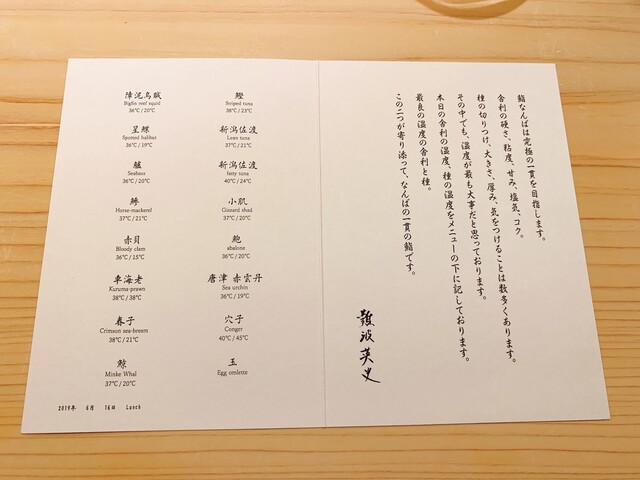 障泥烏賊
Bigfin reef squid
36℃ / 20℃
星鰈
Spotted halibut
36℃ / 19℃
鱸
Seabass
36℃ / 20℃
鯵
Horse-mackerel
37℃ / 21℃
赤貝
Bloody clam
36℃ / 15℃
車海老
Kuruma-prawn
38℃ / 38℃
春子
Crimson sea-bream
38℃ / 21℃
鯨
Minke Whal
37℃ / 20℃
鰹
Striped tuna
38℃ / 23℃
新潟佐渡
Lean tuna
37℃ / 21℃
新潟佐渡
fatty tuna
40℃ / 24℃
小肌
Gizzard shad
37℃ / 20℃
鮑
abalone
36℃ / 20℃
唐津 赤雲丹
Sea urchin
36℃ / 19℃
穴子
Conger
40℃ / 45℃
玉
Egg omlette
2019年 6月 16日 Lunch
鮨なんばは究極の一貫を目指します。
舎利の硬さ、粘度、甘み、塩気、コク。
種の切りつけ、大きさ、厚み、気をつけることは数多くあります。
その中でも、温度が最も大事だと思っております。
本日の舎利の温度、種の温度をメニューの下に記しております。
最良の温度の舎利と種。
この二つが寄り添って、なんばの一貫の鮨です。
難波英史